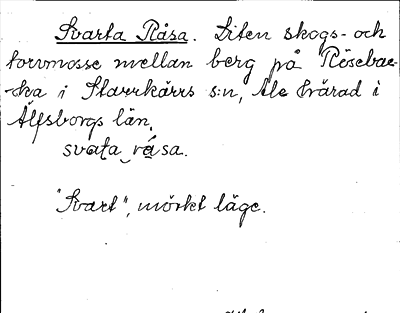 Svarta Råsa. Liten skogs- och
torvmosse mellan berg på Rösebac-
-ka i Starrkärrs s:n, Ale härad i
Älfsborgs län.
svaṭa_råsa.
"Svart", mörkt läge.